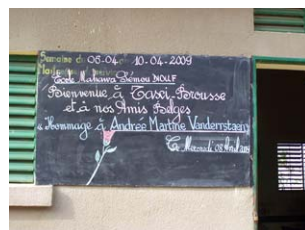 Semaine du 06-04 10-04-2009
Ecole Mahawa Sémou DIOUF
Bienvenue à Tassi-Brousse
et à nos Amis Belges
Hommage à Andree Martine Vanderrstaen
Le Mercredi 08 Avril 2009